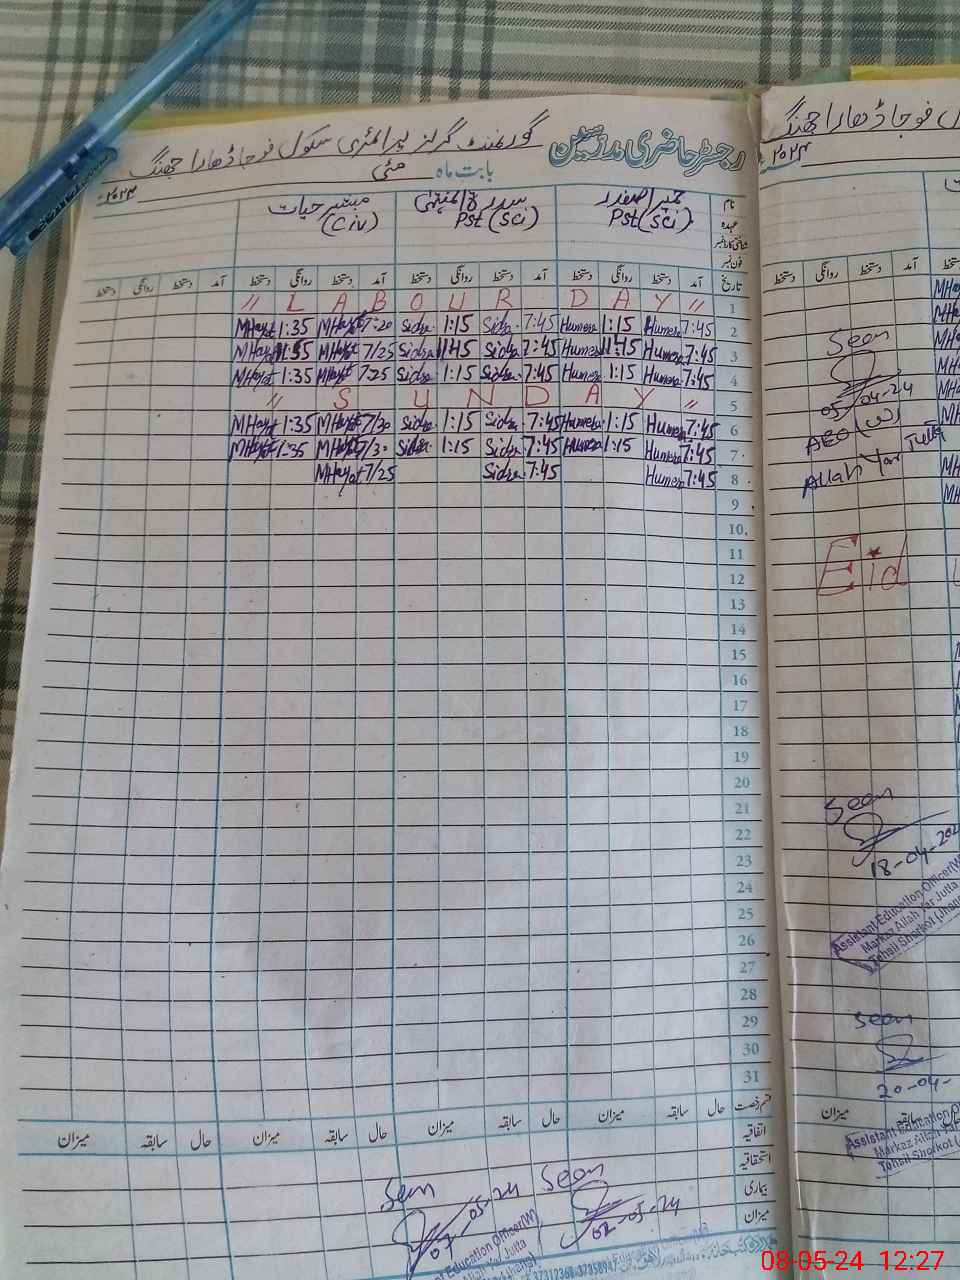 رجسٹر حاضری مدرسین گورنمنٹ گرلز پرائمری سکول فوجا ڈھارا جھنگ
بابت ماہ مئی ۲۰۲۴
نام حمیرا صفدر سدرۃ المنتہیٰ مبشر حیات
عہدہ Pst (Sci) Pst (Sci) (Civ)
شناختی کارڈ نمبر
فون نمبر
تاریخ آمد دستخط روانگی دستخط آمد دستخط روانگی دستخط آمد دستخط روانگی دستخط آمد دستخط روانگی دستخط
1 " L A B O U R D A Y "
2 MHayat 1:35 MHayat 7:20 Sidra 1:15 Sidra 7:45 Humera 1:15 Humera 7:45
3 MHayat 11:35 MHayat 7/25 Sidra 11:45 Sidra 7:45 Humera 11:45 Humera 7:45
4 MHayat 1:35 MHayat 7:25 Sidra 1:15 Sidra 7:45 Humera 1:15 Humera 7:45
5 " S U N D A Y "
6 MHayat 1:35 MHayat 7/30 Sidra 1:15 Sidra 7:45 Humera 1:15 Humera 7:45
7 MHayat 1:35 MHayat 7/30 Sidra 1:15 Sidra 7:45 Humera 1:15 Humera 7:45
8 MHayat 7/25 Sidra 7:45 Humera 7:45
9
10
11
12
13
14
15
16
17
18
19
20
21
22
23
24
25
26
27
28
29
30
31
قسم رخصت حال سابقہ میزان حال سابقہ میزان حال سابقہ میزان حال سابقہ میزان
اتفاقیہ
استحقاقیہ
بیماری
میزان
Seen
02-05-24
Seen
07-05-24
Education Officer(W)
Allah Yar Jutta
37312368, 37358947
فوجا ڈھارا جھنگ
۲۰۲۴
دستخط روانگی دستخط آمد
Seen
05-04-24
AEO (W)
Allah Yar Jutta
Eid
Seen
18-04-202
Assistant Education Officer(W)
Markaz Allah Yar Jutta
Tehsil Shorkot (Jhang
Seen
20-04-
میزان سابقہ
Assistant Education O
Markaz Allah Yar
Tehsil Shorkot (
08-05-24 12:27